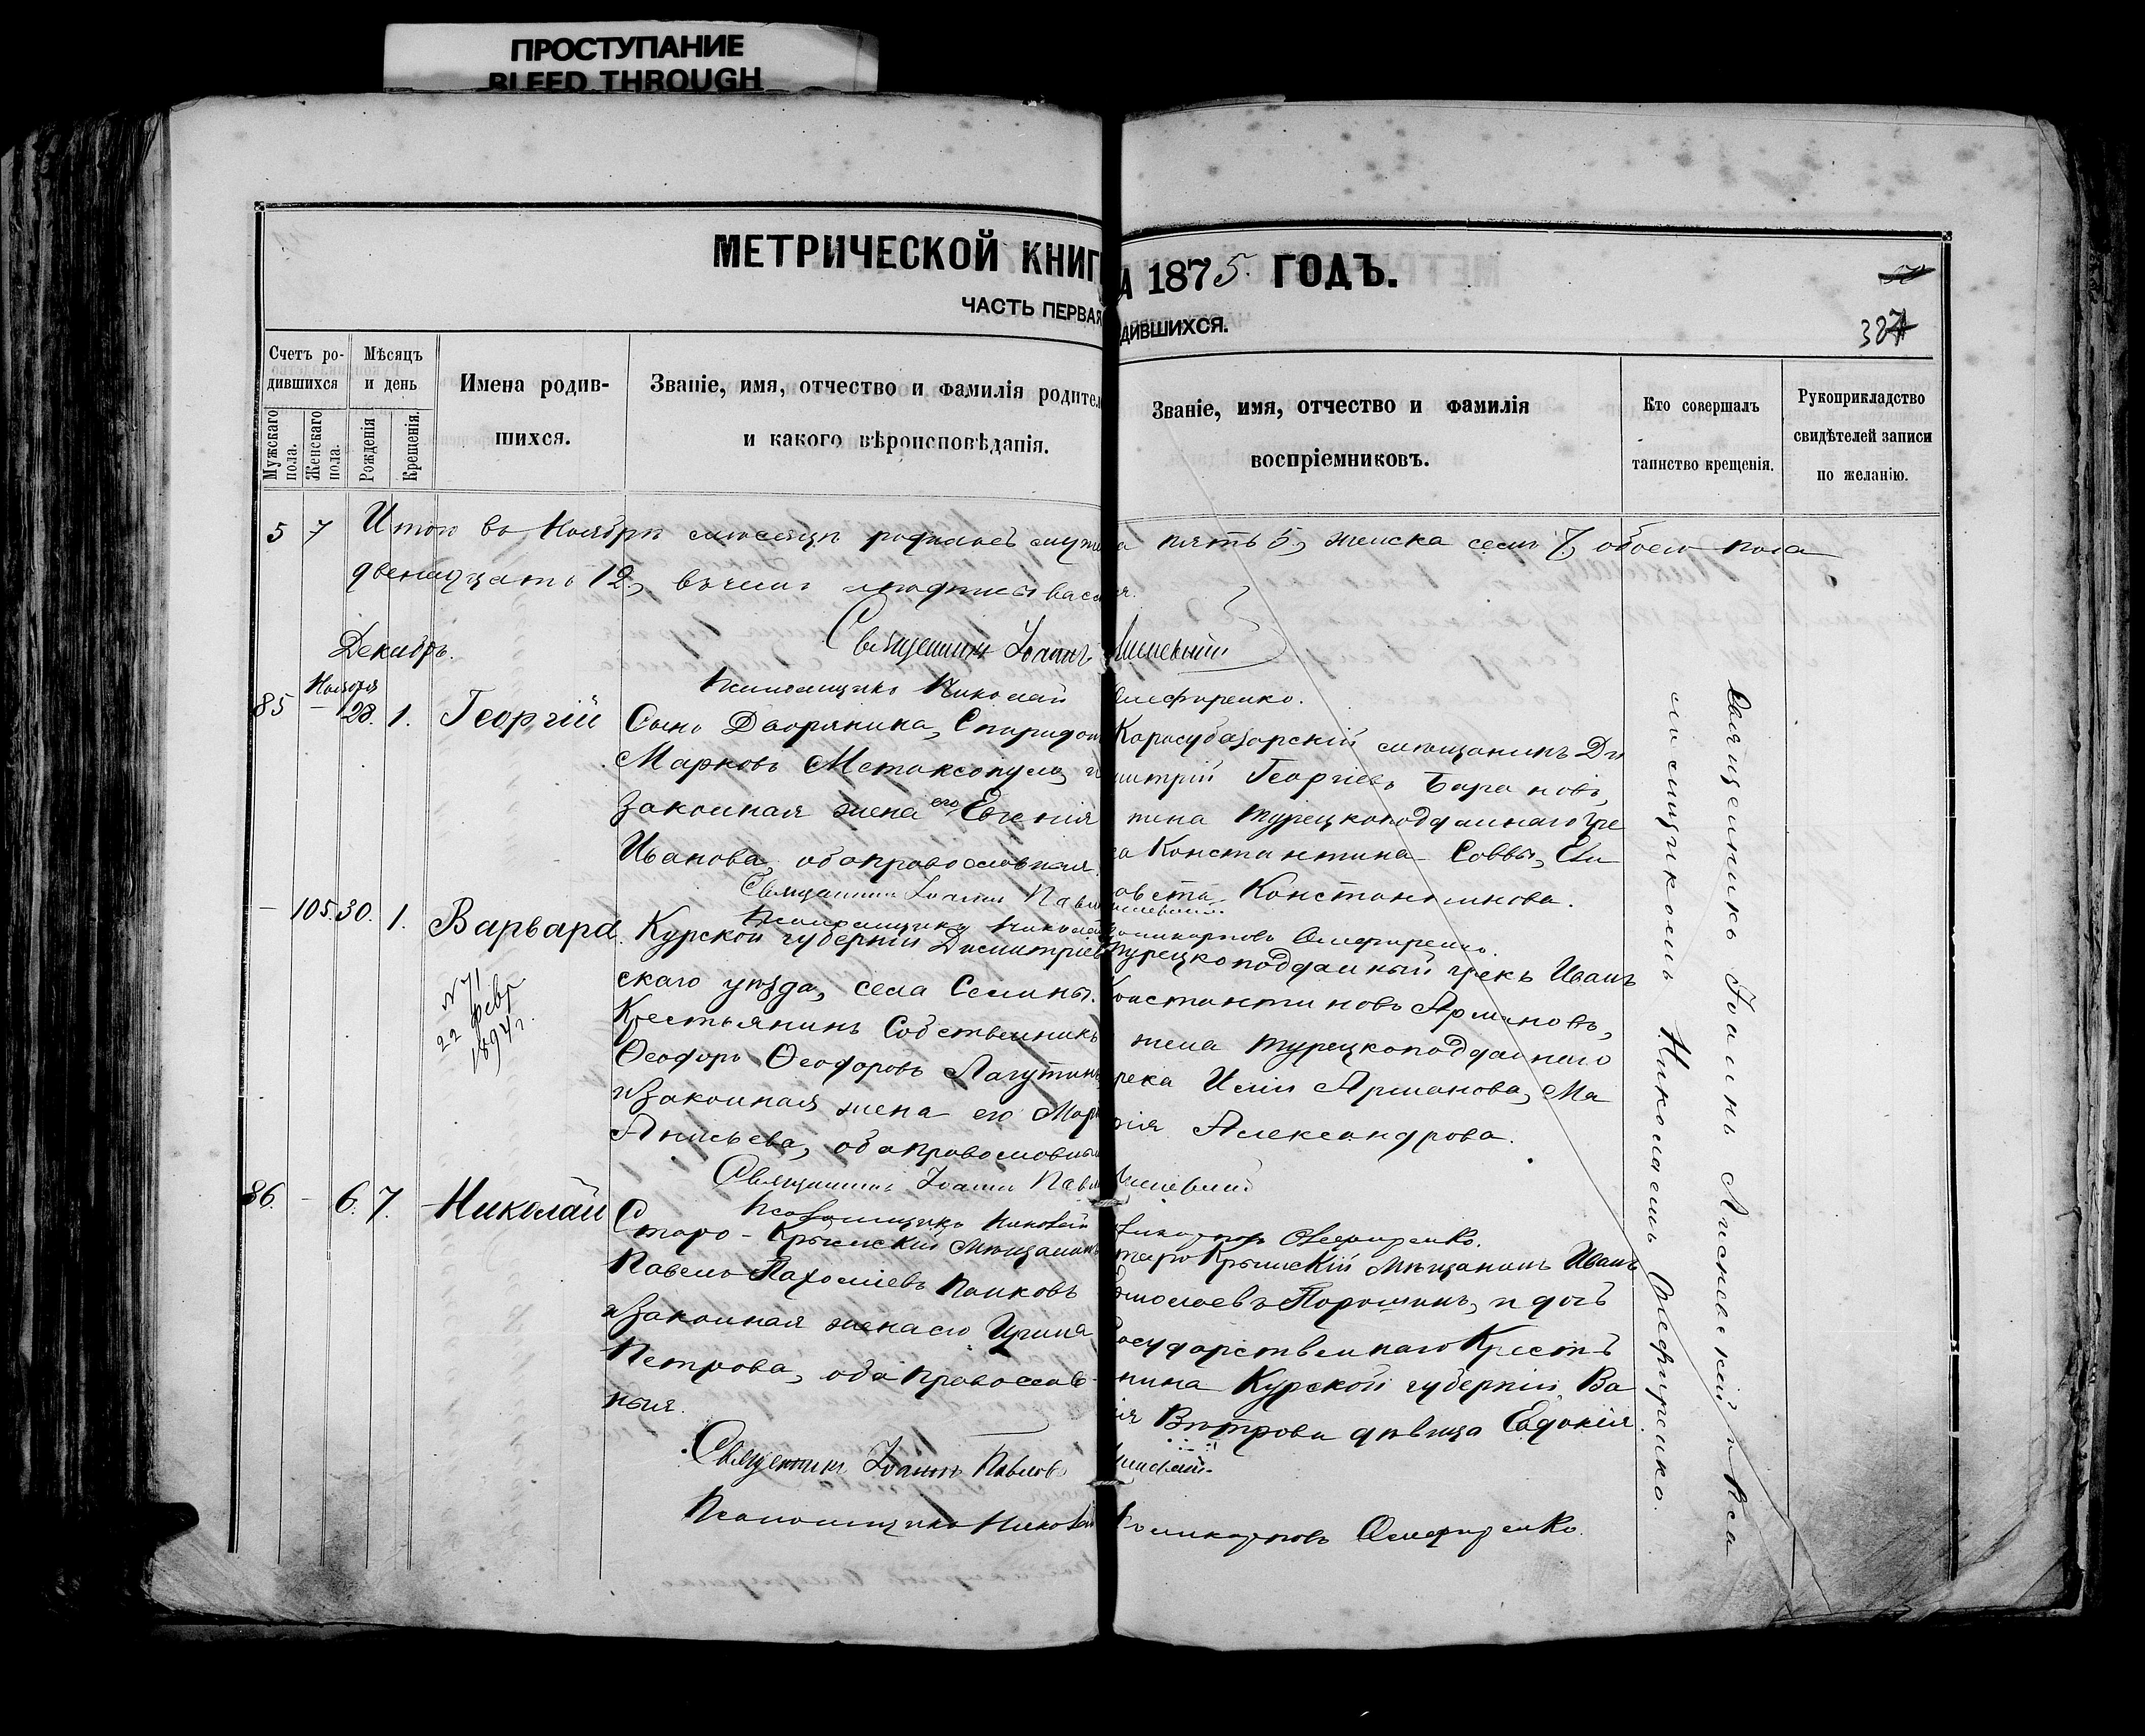 ПРОСТУПАНИЕ
BLEED THROUGH
МЕТРИЧЕСКОЙ КНИГ
А 1875 ГОДЪ.
ЧАСТЬ ПЕРВАЯ
ДИВШИХСЯ.
387
Счетъ ро-
дившихся
Мужскаго пола.
Женскаго пола.
Мѣсяцъ
и день
Рожденія
Крещенія.
Имена родив-
шихся.
Званіе, имя, отчество и фамилія родител
и какого вѣроисповѣданія.
Званіе, имя, отчество и фамилія
воспріемниковъ.
Кто совершалъ
таинство крещенія.
Рукоприкладство
свидѣтелей записи
по желанію.
5 7 Итого въ Ноябрѣ мѣсяцѣ пять 5, женска семь 7, обоего пола
двенадцать 12,
Священникъ Іоаннъ
Декабрь.
Псаломщикъ Николай Олефиренко.
85 Ноября 28. 1. Георгій
Сынъ Дворянина, Спиридон
Марковъ Метаксопуло, и
законная жена его Евгенія
Иванова, оба православныя.
Карасубазарскій мѣщанинъ Ди
митрій Георгіевъ
жена турецкоподданнаго гре
ка Константина Соввы, Ели
совета Константинова.
Священникъ Іоаннъ Павл
Псаломщикъ Николай Поликарповъ Олефиренко.
— 105. 30. 1. Варвара
N 71
22 февр
1894 г.
Курской губерніи Дмитріев
скаго уѣзда, села Селины.
Крестьянинъ Собственникъ
Ѳеодоръ Ѳеодоровъ Лагутинъ
и законная жена его Мар
оба православныя
Турецкоподданный грекъ Иванъ
Константиновъ Армановъ,
жена турецкоподданнаго
грека Иліи Арманова, Ма
рія Александрова.
Священникъ Іоаннъ Павл
Псаломщикъ Николай Поликарповъ Олефиренко.
86. — 6. 7. Николай
Старо-Крымскій Мѣщанинъ
Павелъ Пахоміевъ Панковъ
и законная жена его Ирина
Петрова, оба православ-
ныя.
Старо Крымскій Мѣщанинъ Иванъ
Порошинъ, и дочь
Государственнаго Крестья
нина Курской губерніи, Ва
Вѣтрова дѣвица Евдокія.
Священникъ Іоаннъ Павловъ
Псаломщикъ Николай Поликарповъ Олефиренко.
Священникъ Іоаннъ и Пса
ломщикомъ Николаемъ Олефиренко.